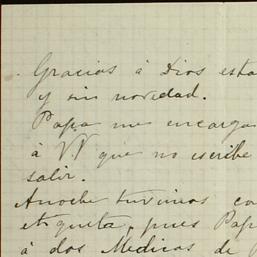 Gracias á Dios esta
y sin novedad.
Papa me encarga
á VV que no escribe
salir.
Anoche tuvimos co
etiqueta, pues Pap
á dos Medicos de